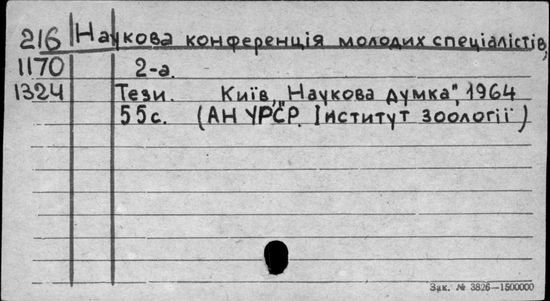 216 Наукова конференція молодих спеціалістів,
1170 2-а.
1324 Тези. Київ, „Наукова думка", 1964
55с. (АН УРСР. Інститут зоології)
Зак. № 3826—1500000